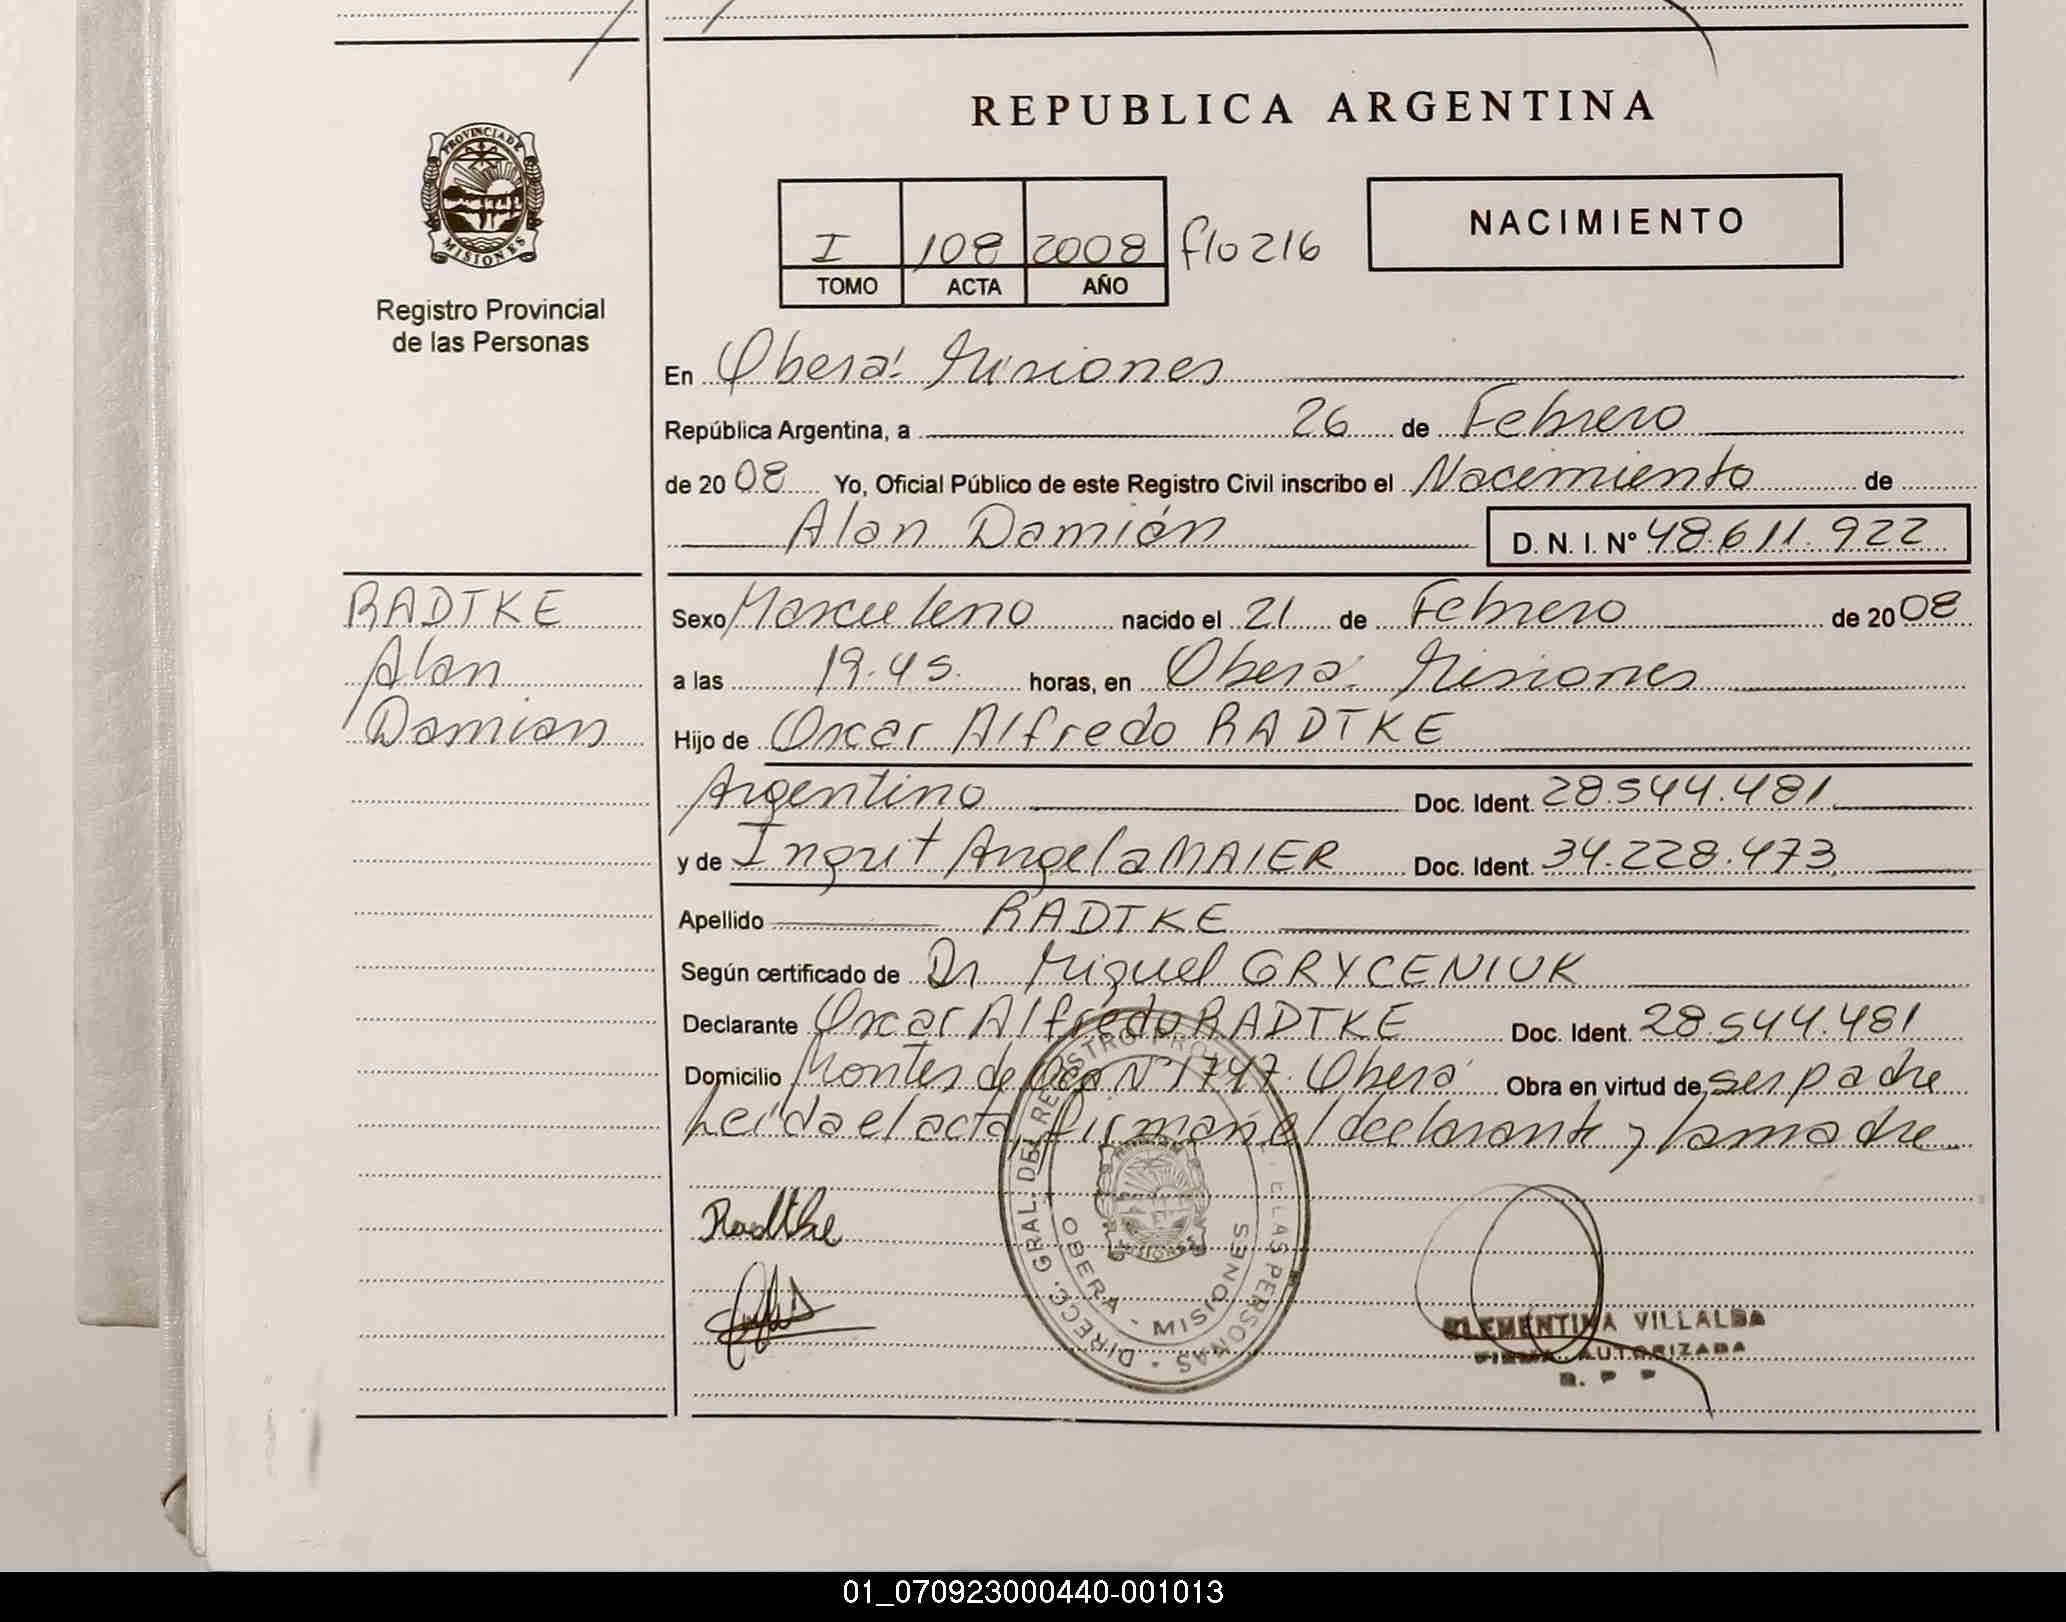 REPUBLICA ARGENTINA
PROVINCIA DE
MISIONES
Registro Provincial
de las Personas
I 108 2008 f/o 216
TOMO ACTA AÑO
NACIMIENTO
En Oberá. Misiones
República Argentina, a 26 de Febrero
de 2008 Yo, Oficial Público de este Registro Civil inscribo el Nacimiento de
Alan Damián D. N. I. Nº 48.611.922
RADTKE
Alan
Damian
Sexo Masculino nacido el 21 de Febrero de 2008
a las 19.45. horas, en Oberá. Misiones
Hijo de Oscar Alfredo RADTKE
Argentino Doc. Ident. 28.544.481.
y de Ingrit Angela MAIER Doc. Ident. 34.228.473.
Apellido RADTKE
Según certificado de Dr Miguel GRYCENIUK
Declarante Oscar Alfredo RADTKE Doc. Ident. 28.544.481
Domicilio Montes de Oca Nº 1747. Oberá Obra en virtud de ser padre
Leída el acta, firman el declarante y la madre
Radtke
DIRECC. GRAL. DEL REGISTRO PROV. DE LAS PERSONAS
OBERA - MISIONES
MISIONES
CLEMENTINA VILLALBA
FIRMA AUTORIZADA
R. P P
01_070923000440-001013